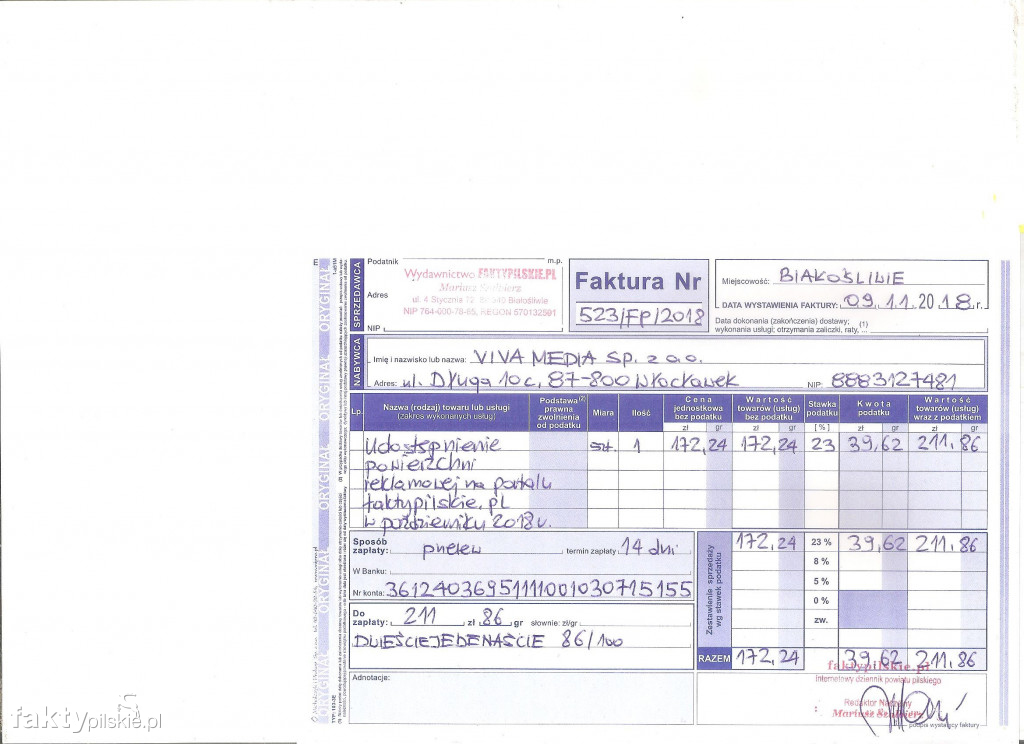 Podatnik
m.p.
Wydawnictwo FAKTYPILSKIE.PL
Mariusz
Adres
ul. 4 Stycznia 72, 340 Białośliwie
NIP 764-000-78-65, REGON 570132591
NIP
SPRZEDAWCA
Faktura Nr
523/FP/2018
Miejscowość: BIAŁOŚLIWIE
DATA WYSTAWIENIA FAKTURY: 09.11.2018 r.
Data dokonania (zakończenia) dostawy;
wykonania usługi; otrzymania zaliczki, raty, ... (1)
NABYWCA
Imię i nazwisko lub nazwa: VIVA MEDIA SP. z o.o.
Adres: ul. Długa 10c, 87-800 Włocławek NIP: 8883127481
Lp. Nazwa (rodzaj) towaru lub usługi (zakres wykonanych usług) Podstawa(2) prawna zwolnienia od podatku Miara Ilość Cena jednostkowa bez podatku Wartość towarów (usług) bez podatku Stawka podatku Kwota podatku Wartość towarów (usług) wraz z podatkiem
zł gr zł gr [%] zł gr zł gr
Udostępnienie szt. 1 172,24 172,24 23 39,62 211,86
powierzchni
reklamowej na portalu
faktypilskie.pl
w październiku 2018r.
Sposób zapłaty: przelew termin zapłaty 14 dni
W Banku:
Nr konta: 36124036951111001030715155
Do zapłaty: 211 zł 86 gr słownie: zł/gr
DWIEŚCIEJEDENAŚCIE 86/100
Zestawienie sprzedaży wg stawek podatku
172,24 23 % 39,62 211,86
8 %
5 %
0 %
zw.
RAZEM 172,24 39,62 211,86
Adnotacje:
faktypilskie.pl
Internetowy dziennik powiatu pilskiego
Redaktor Naczelny
Mariusz
podpis wystawcy faktury
ORYGINAŁ ORYGINAŁ ORYGINAŁ ORYGINAŁ ORYGINAŁ ORYGINAŁ
faktypilskie.pl